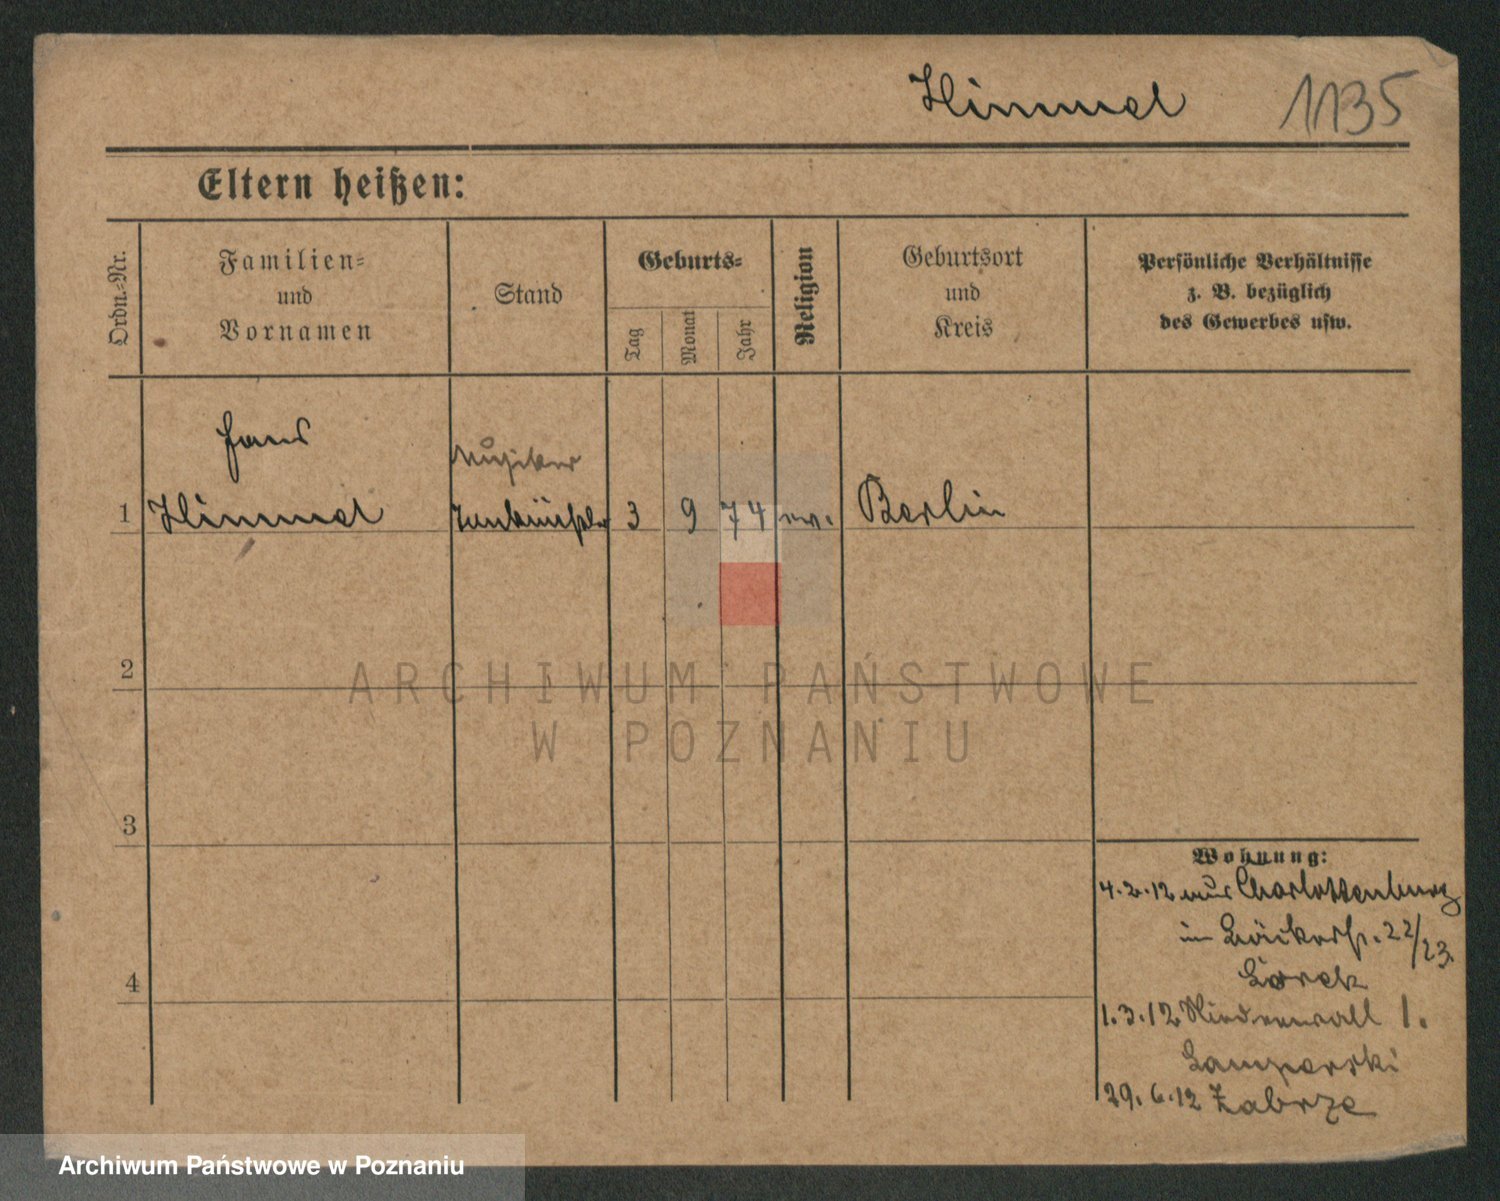 Himmel 1135
Eltern heißen:
Ordn.-Nr.
Familien-
und
Vornamen
Stand
Geburts-
Tag
Monat
Jahr
Religion
Geburtsort
und
Kreis
Persönliche Verhältnisse
z. B. bezüglich
des Gewerbes usw.
Hans
Musiker
1 Himmel 3 9 74 ev. Berlin
2
3
4
Wohnung:
4.2.12 aus Charlottenburg
in Bäckerstr. 22/23.
1.3.12 1.
29.6.12 Zabrze
ARCHIWUM PAŃSTWOWE
W POZNANIU
Archiwum Państwowe w Poznaniu